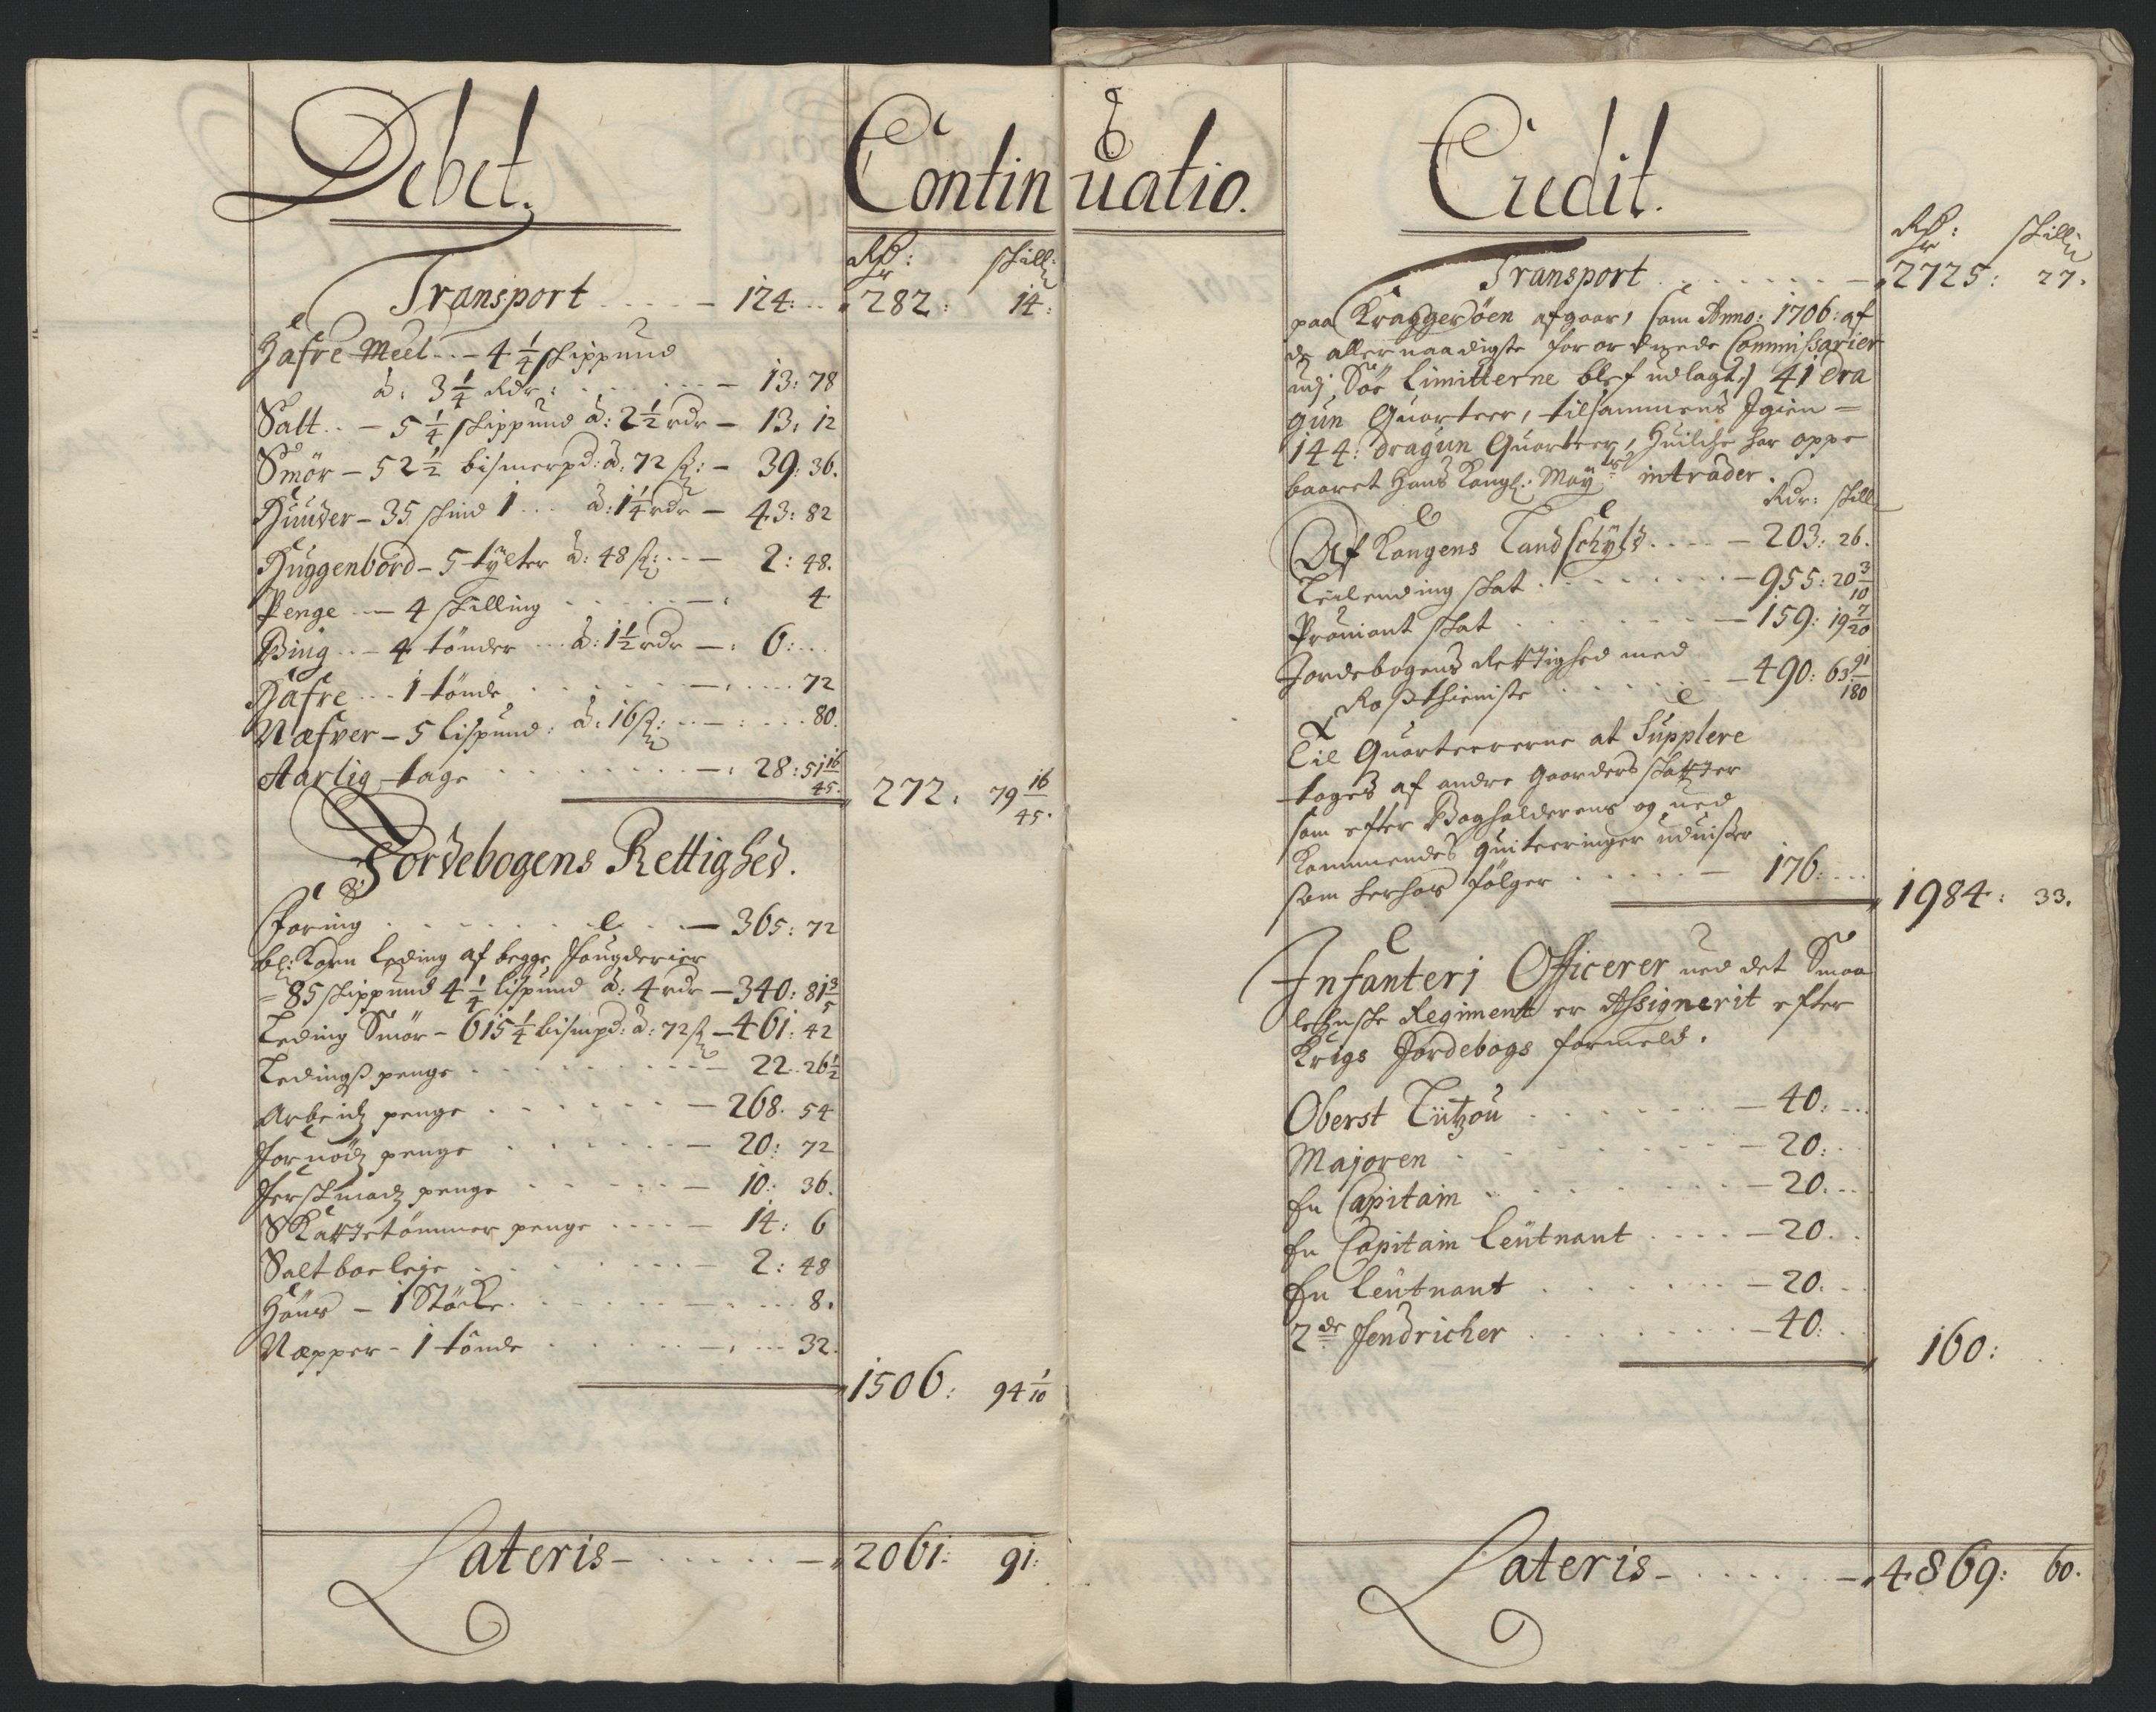 Debet.
Continuatio.
Rdr: skill:
Transport - 124: 282: 14:
Hafre Meel - 4 1/4 skippund
à: 3 1/4 Rdr: - 13: 78
Salt - 5 1/4 skippund à: 2 1/2 rdr - 13: 12
Smör - 52 1/2 bismerpd: à: 72 sk: - 39: 36.
Huuder - 35 skind 1 à: 1 1/4 rdr - 43: 82
Huggenbord - 5 tylter à: 48 sk: - 2: 48.
Penge - 4 skilling - 4
Biug - 4 tönder à: 1 1/2 rdr - 6:
Hafre - 1 tönde - 72
Næfver - 5 lispund: à: 16 sk: - 80.
Aarlig tage - 28: 51 16/45. 272. 79 16/45.
Jordebogens Rettighed.
Foring - 365: 72
bl: Korn Leding af begge Fougderier
85 skippund 4 1/4 lispund à: 4 rdr - 340: 81 3/5
Leding Smör - 615 1/4 bismpd: à: 72 sk - 461: 42
Ledingß penge - 22. 26 1/2
Arbeidz penge - 268. 54
Fornödz penge - 20: 72
Ferskmadz penge - 10: 36.
Skattetömmer penge - 14: 6
Saltboe leje - 2: 48
Höns - 1 Stöcke - 8.
Næpper - 1 tönde - 32.
1506: 94 1/10
Lateris - 2061: 91:
Credit.
Rdr: skill:
Transport - 2725: 27.
paa Kraggeröen afgaar, som Anno: 1706: af
de allernaadigste forordnede Commissarier
udj Söe Limitterne blef udlagt, 41 dra
gun Quarteer, tilsammens Igien =
144: dragun Quarteer, Huilche har oppe
baaret Hans Kongl: May:ts intrader.
Rdr: skill
Af Kongens Landschyld - 203: 26.
Leilending skat - 955: 20 3/10
Proviant skat - 159: 19 7/20
Jordebogens Rettighed med
Roßthieniste - 490: 63 91/180
Til Quarteererne at Supplere
tages af andre Gaarders skatter
som efter Bogholderens og ved
kommendes quiteeringer uduiser
som herhos fölger - 176:
1984: 33.
Infanteri Officerer ved det Smaa
lehnske Regiment er Assignerit efter
Krigs Jordebogs formeld.
Oberst Lützou - 40:
Majoren - 20:
En Capitain - 20.
En Capitain Leutnant - 20.
En Leutnant - 20:
2de Fendricher - 40:
160:
Lateris - 4869: 60.